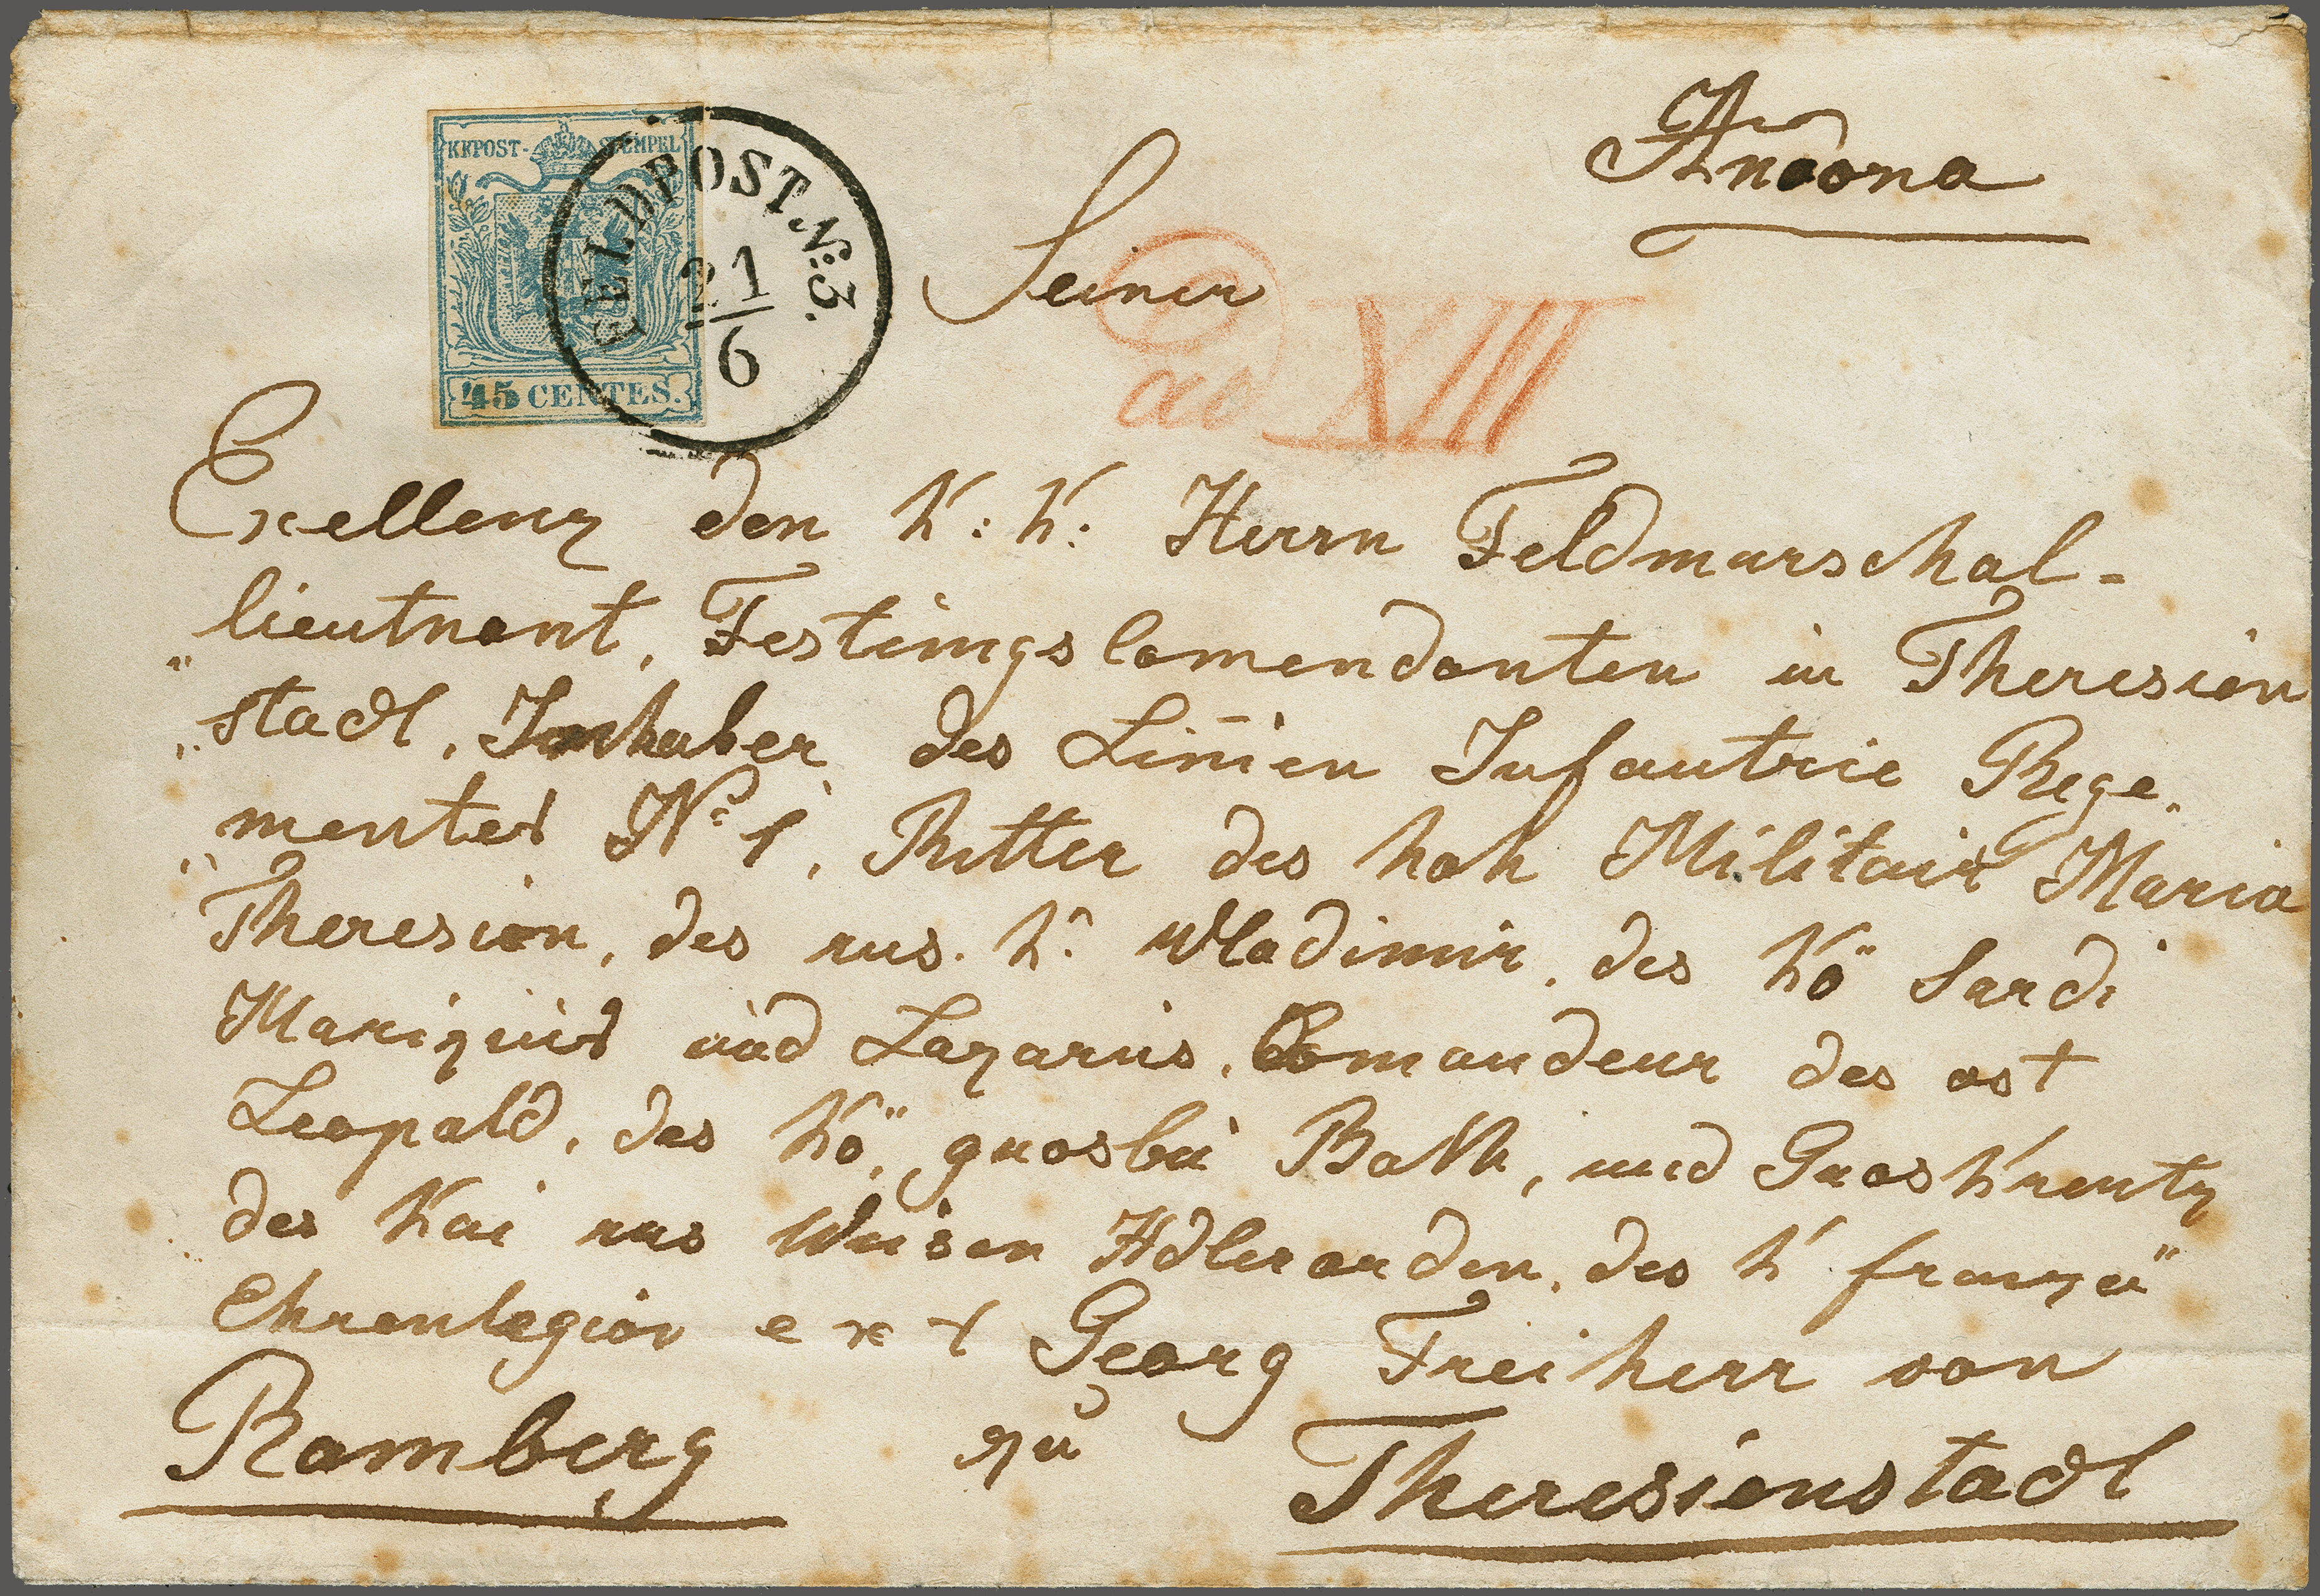 Ancona
KKPOST-STEMPEL
FELDPOST. No: 3.
21
6
45 CENTES.
Seiner
XIII
Exellenz den k: k: Herrn Feldmarschal-
lieutnant, Festungs Comendanten in Theresien
"stadt, Innhaber des Linien Infantrie Rege„
„mentes No 1, Ritter des hoh Militair Maria
Theresien, des rus. k. Wladimir, des kö" Sardi
Mariziüs und Lazarus, Comandeur des ost
Leopold, des kö", grosbri Bath, und Groskreutz
des kai rus Weisen Adlerorden, des k. franzö"
Ehrenlegion ext Georg Freiherr von
Ramberg zu Theresienstadt